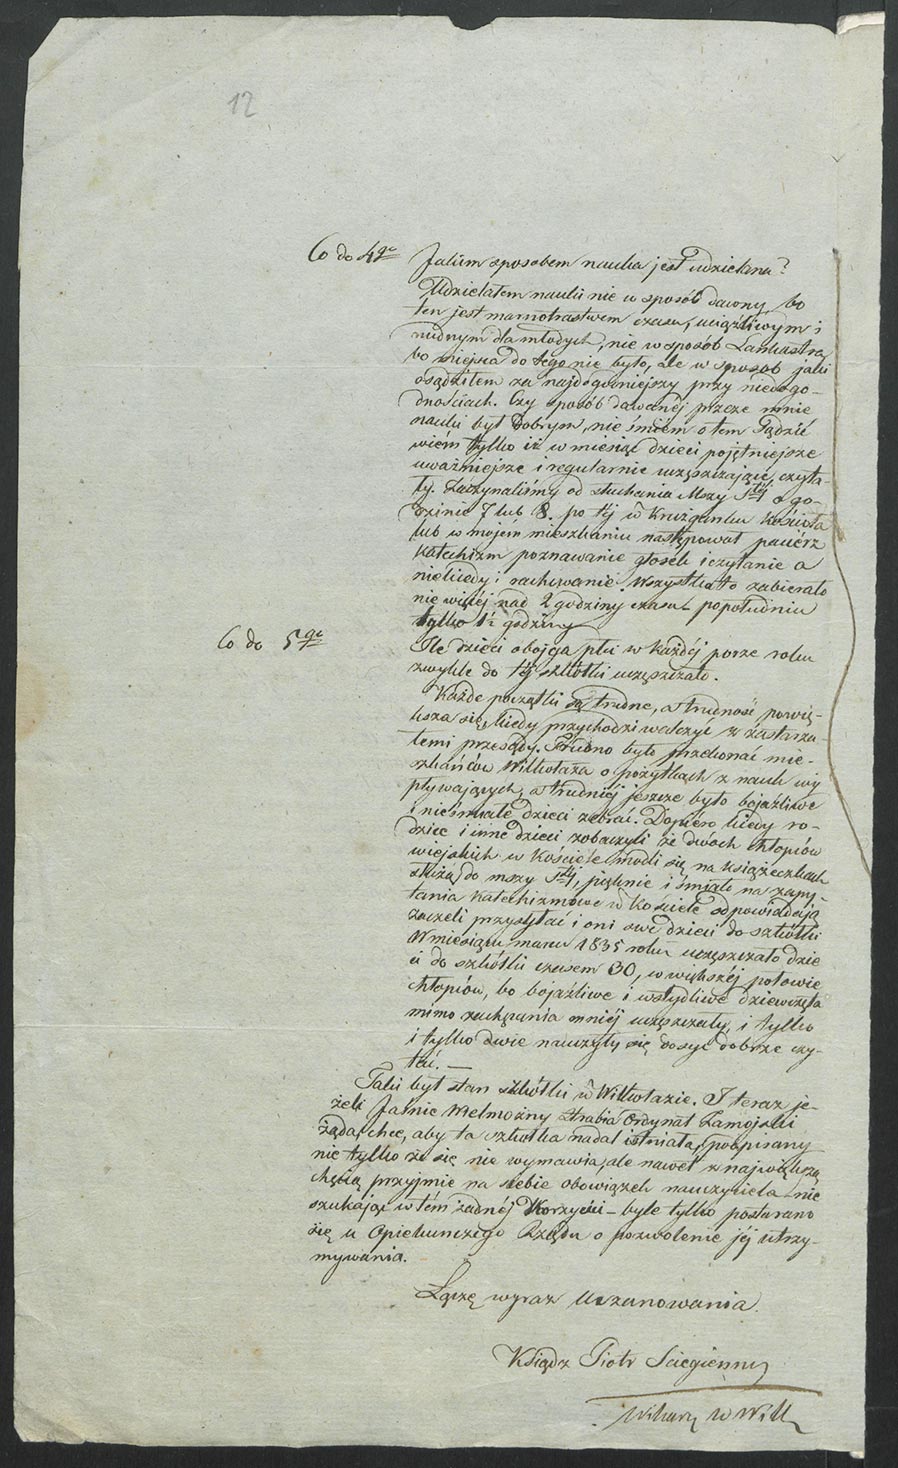 12
Co do 4go Jakim sposobem nauka jest udzielana?
Udzielałem nauki nie w sposób dawny, bo
ten jest marnotrastwem czasu, uciążliwym i
nudnym dla młodych, nie w sposób Lankastra
bo miejsca do tego nie było, ale w sposób jaki
osądziłem za najdogodniejszy przy niedogo-
dnościach. Czy sposób dawanéj przeze mnie
nauki był dobrym, nie śmiém o tem sądzić
wiém tylko iż w miesiąc dzieci pojętniejsze
uważniejsze i regularnie uczęszczające, czyta-
ły. Zaczynaliśmy od słuchania Mszy Stéj o go-
dzinie 7 lub 8. po téj w Krużganku Kościoła
lub w mojém mieszkaniu następował paciérz
Katechizm poznawanie głosek i czytanie a
niekiedy i rachowanie. Wszystko to zabierało
nie więcéj nad 2 godziny czasu popołudniu
tylko 1½ godziny
Co do 5go Ile dzieci obojga płci w każdéj porze roku
zwykle do téj szkółki uczęszczało.
Każde początki są trudne, a trudność powię-
ksza się, kiedy przychodzi walczyć z zastarza-
łemi przesądy. Trudno było przekonać mie-
szkańców Wilkołaza o pożytkach z nauk wy
pływających, a trudniéj jeszcze było bojaźliwe
i nieśmiałe dzieci zebrać. Dopiéro kiedy ro-
dzice i inne dzieci zobaczyli że dwóch chłopiów
wiejskich w Kościele modli się na książeczkach
służą do mszy Stéj, pięknie i śmiało na zapy-
tania katechizmowe w Kościele odpowiadają
zaczeli przysyłać i oni swe dzieci do szkółki
W miesiącu marcu 1835 roku uczęszczało dzie
ci do szkółki czasem 30, w większéj połowie
chłopiów, bo bojaźliwe i wstydliwe dziewczęta
mimo zachęcania mniéj uczęszczały, i tylko
i tylko dwie nauczyły się dosyć dobrze czy-
tać. —
Taki był stan szkółki w Wilkołazie. I teraz je-
żeli Jaśnie Wielmożny Hrabia Ordynat Zamojski
żąda, chce, aby ta szkółka nadal istniała, podpisany
nie tylko że się nie wymawia, ale nawet z największą
chęcią przyjmie na siebie obowiązek nauczyciela nie
szukając w tém żadnéj Korzyści – byle tylko postarano
się u Opiekunczego Rządu o pozwolenie jéj utrzy-
mywania.
Łączę wyraz Uszanowania
Ksiądz Piotr Sciegienny
Wikary w Wilk